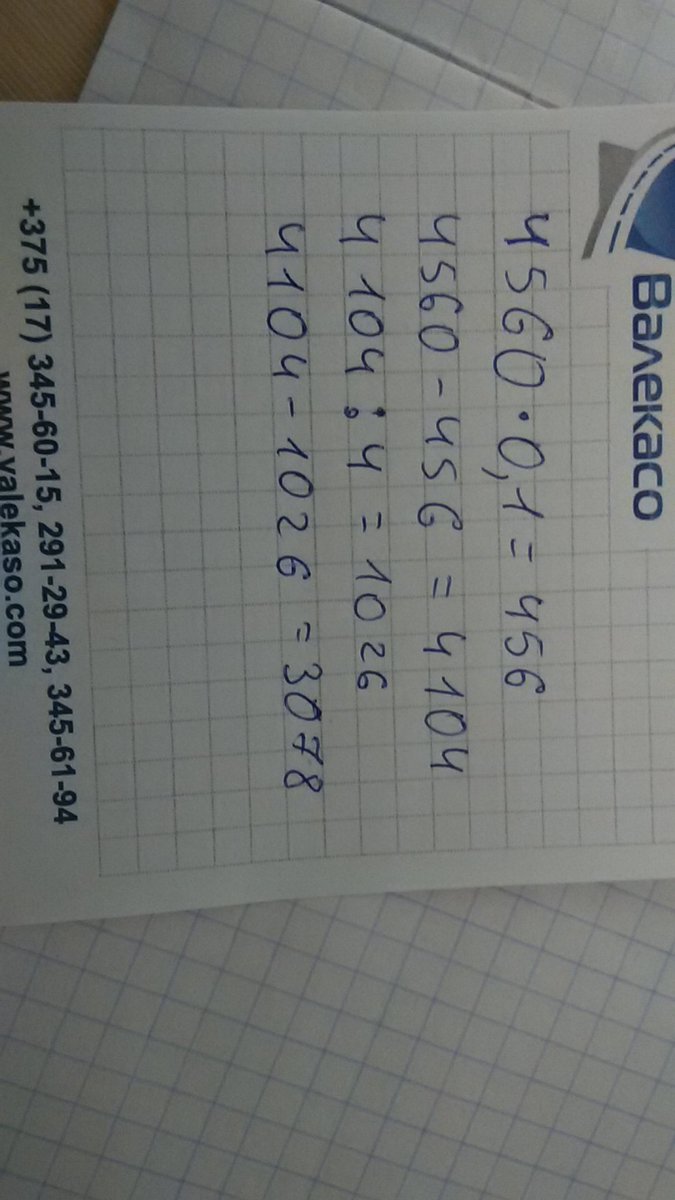 Валекасо
4560 · 0,1 = 456
4560 - 456 = 4104
4104 : 4 = 1026
4104 - 1026 = 3078
+375 (17) 345-60-15, 291-29-43, 345-61-94
www.valekaso.com